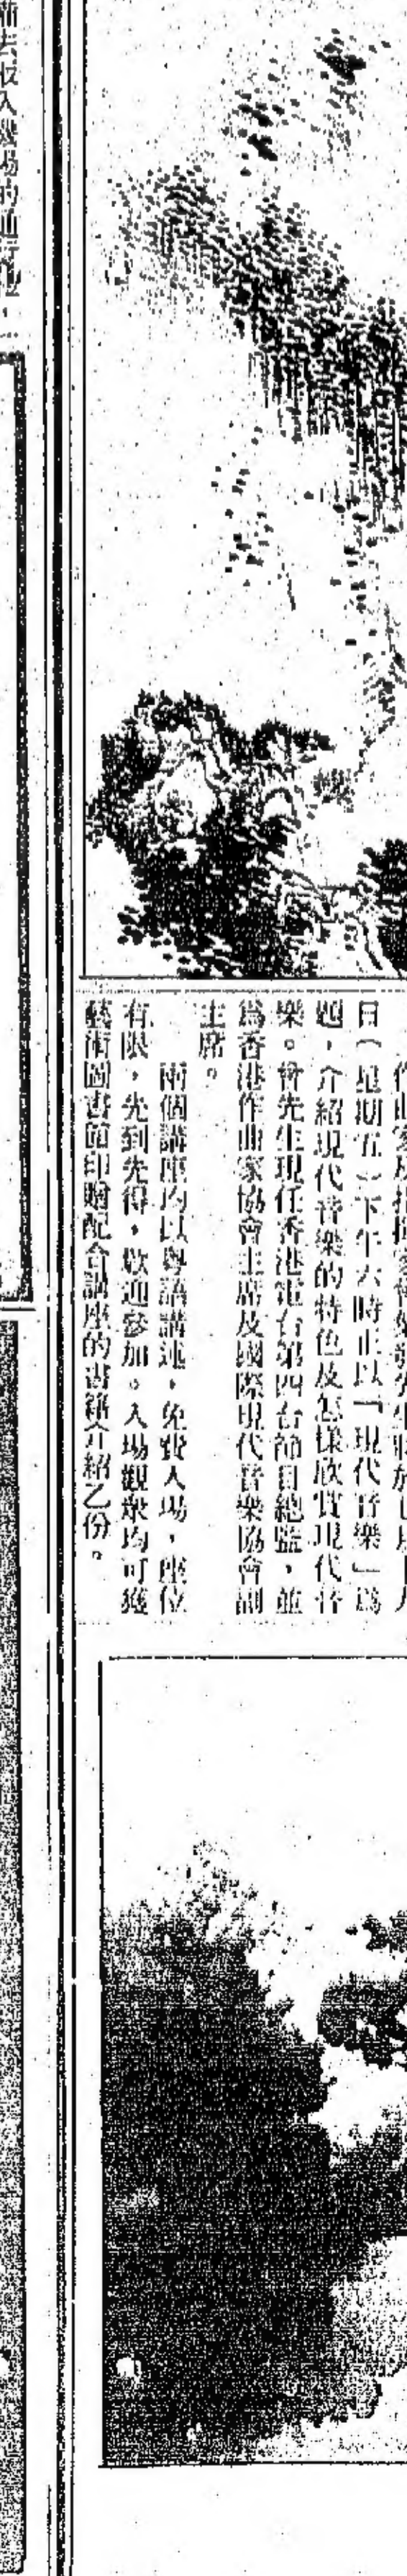 作曲家及指揮家曾葉發先生將於七月十九
日（星期五）下午六時正以「現代音樂」爲
題，介紹現代音樂的特色及怎樣欣賞現代音
樂。曾先生現任香港電台第四台節目總監，並
爲香港作曲家協會主席及國際現代音樂協會副
主席。
兩個講座均以粵語講述，免費入場，座位
有限，先到先得，歡迎參加。入場觀衆均可獲
藝術圖書館印贈配合講座的書籍介紹乙份。